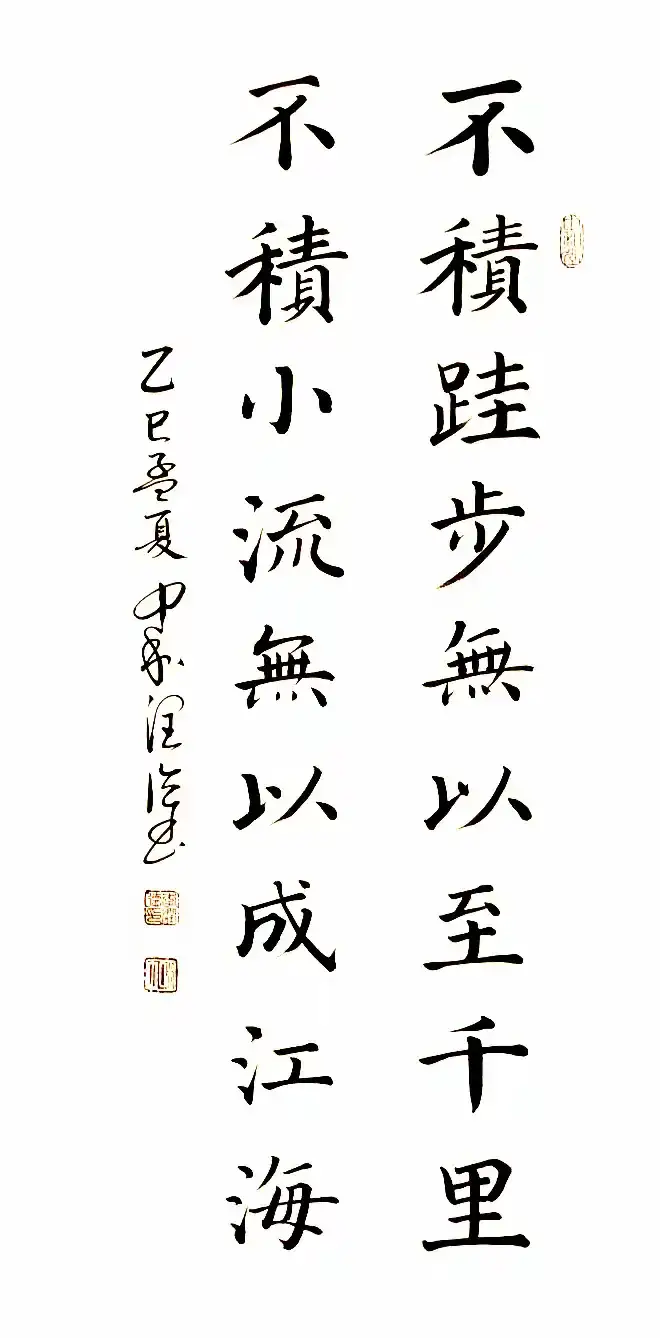 不積跬步無以至千里
不積小流無以成江海
乙巳孟夏中秋涇信書